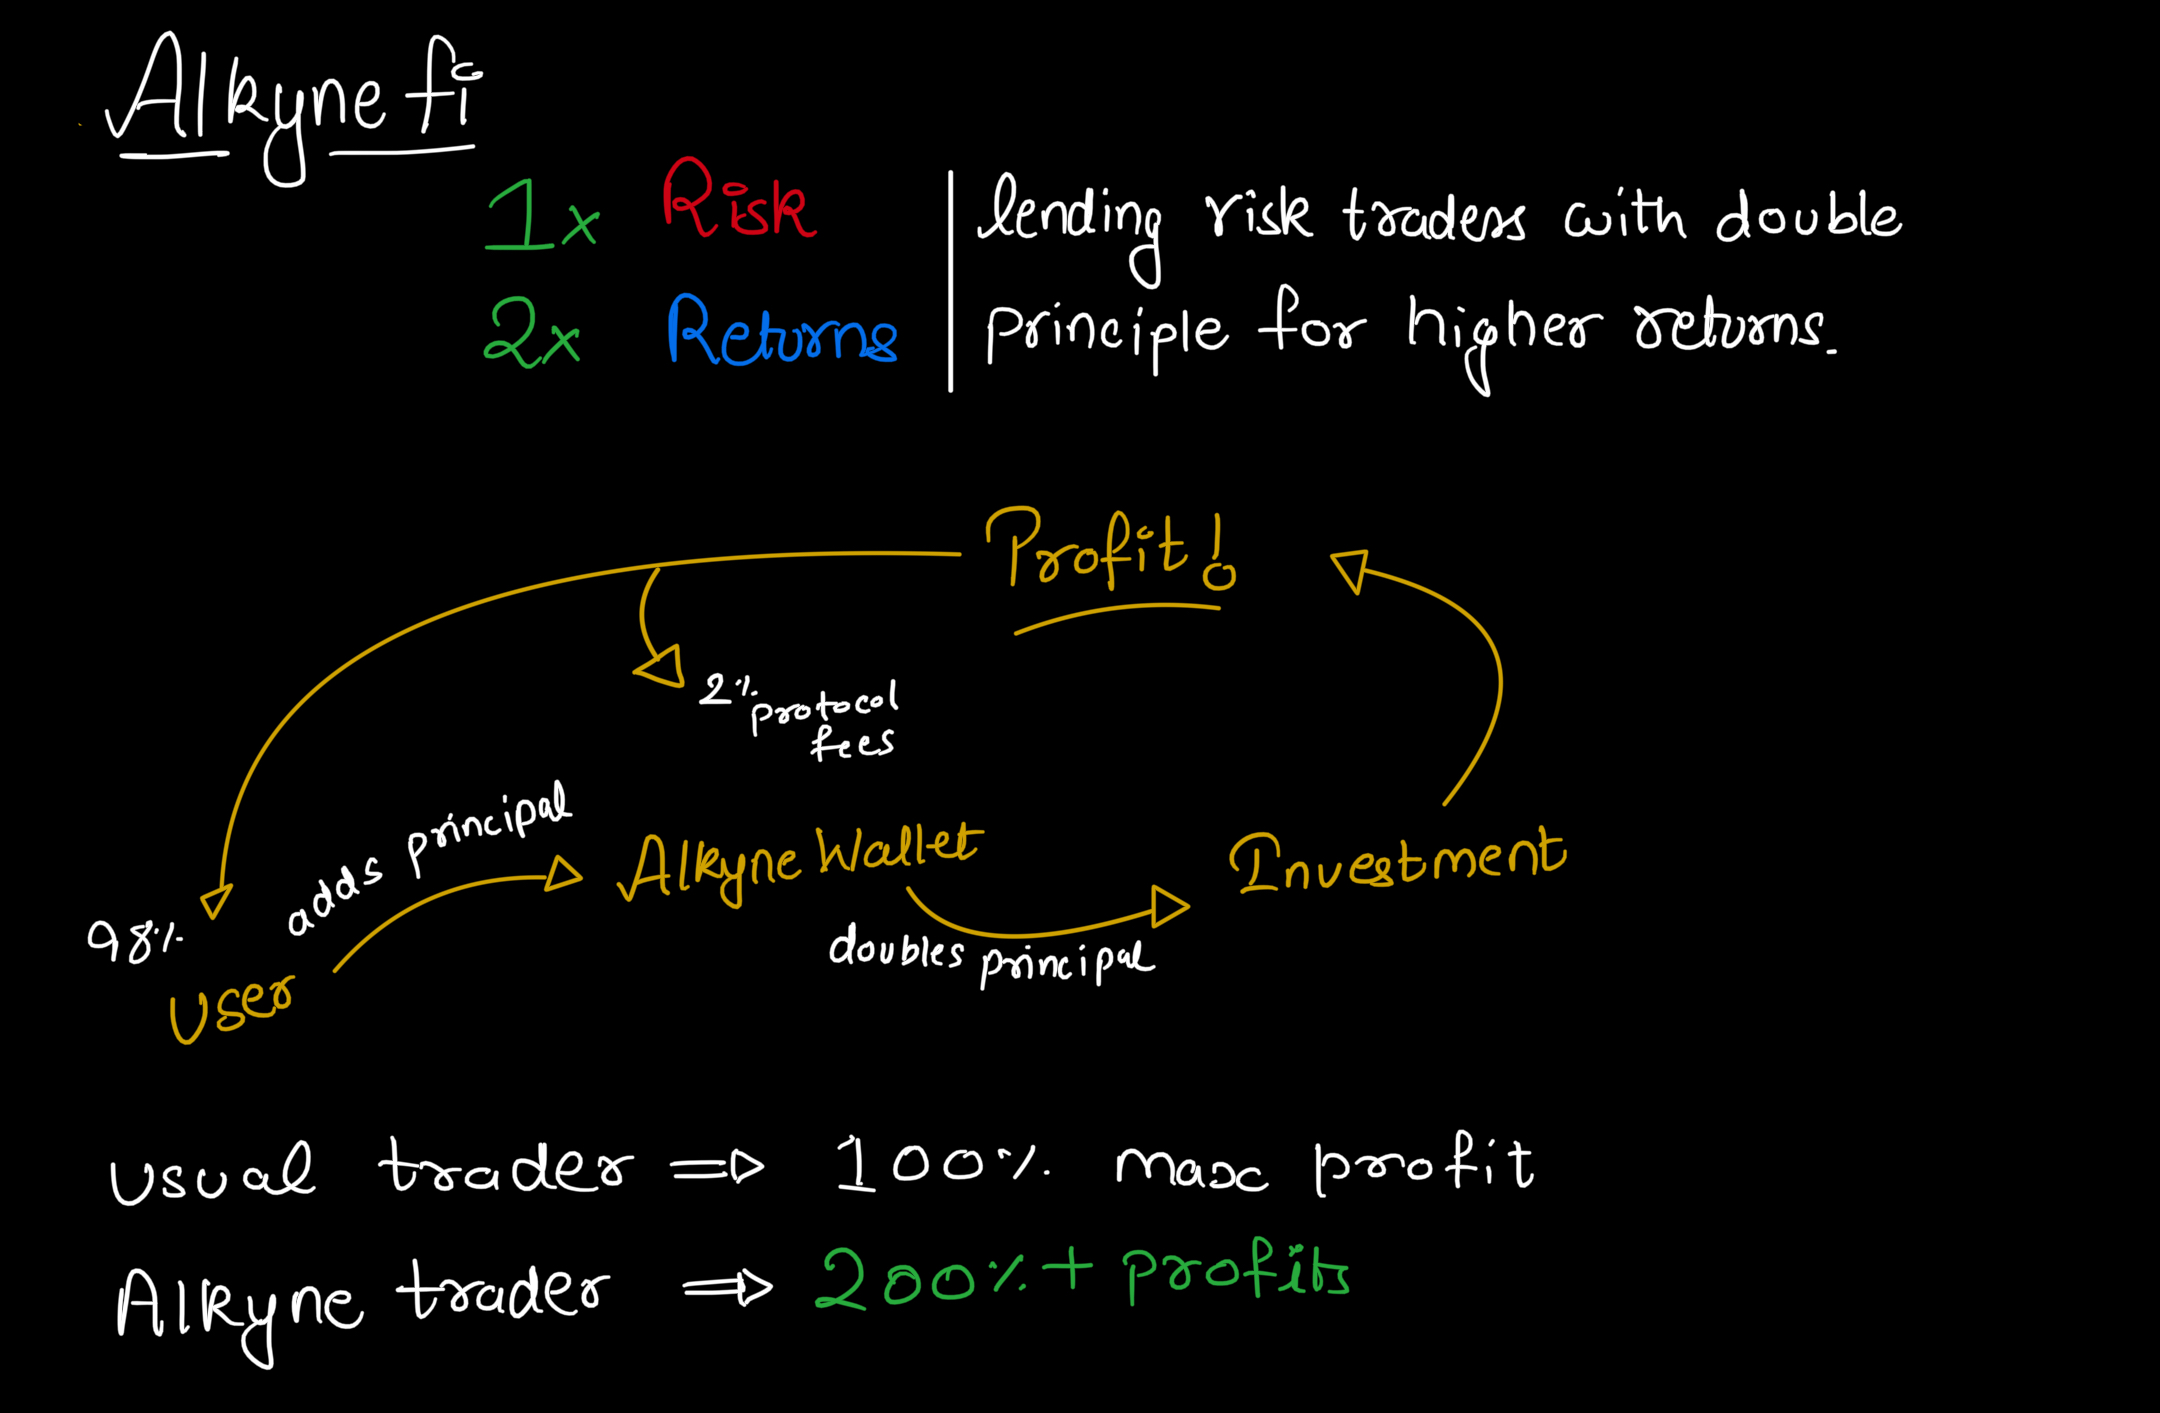 Alkyne fi
1x Risk
2x Returns
lending risk traders with double
principle for higher returns.
Profit!
2%
protocol
fees
adds principal
Alkyne Wallet
Investment
doubles principal
98%
User
usual trader => 100% max profit
Alkyne trader => 200%+ profits